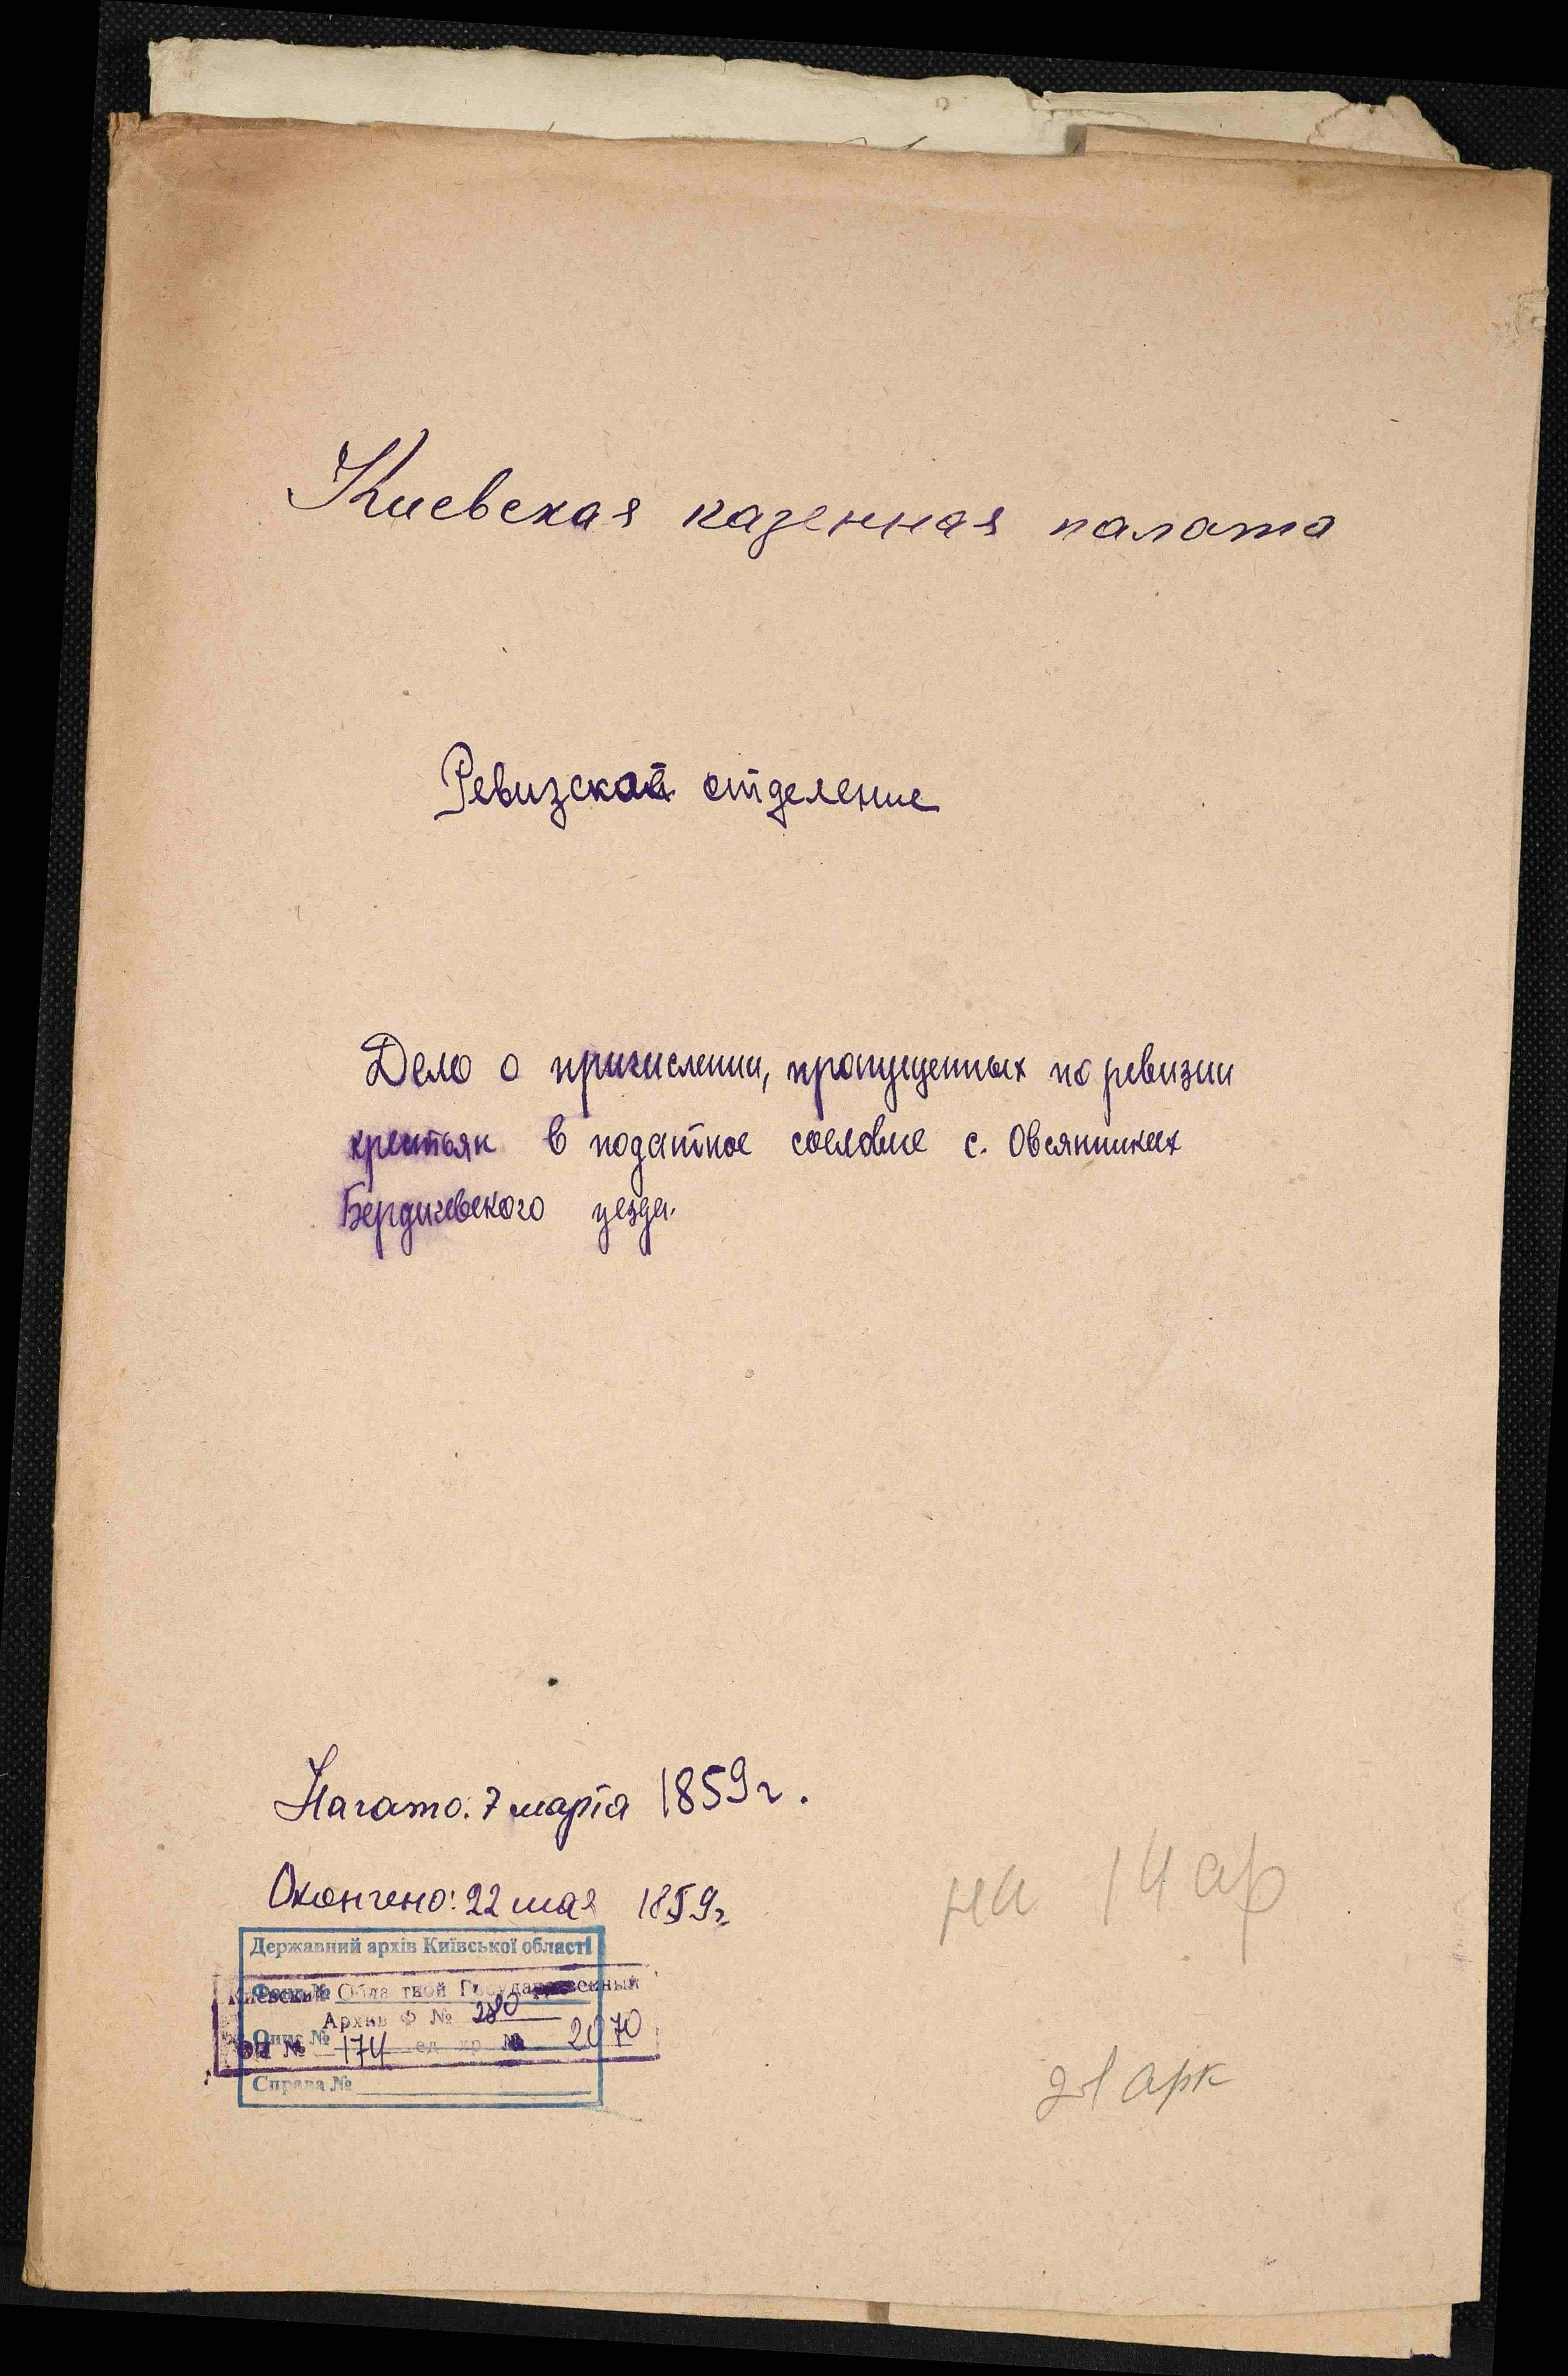 Киевская казенная палата
Ревизское отделение
Дело о причислении, пропущенных по ревизии
крестьян в податное сословие с. Овсянниках
Бердичевского уезда.
Начато: 7 марта 1859 г.
Окончено: 22 мая 1859 г.
на 14 ар
21 арк
Державний архів Київської області
Фонд №
Опис №
Справа №
Киевский Областной Государственный
Архив Ф № 280
оп № 174 ед хр № 2070